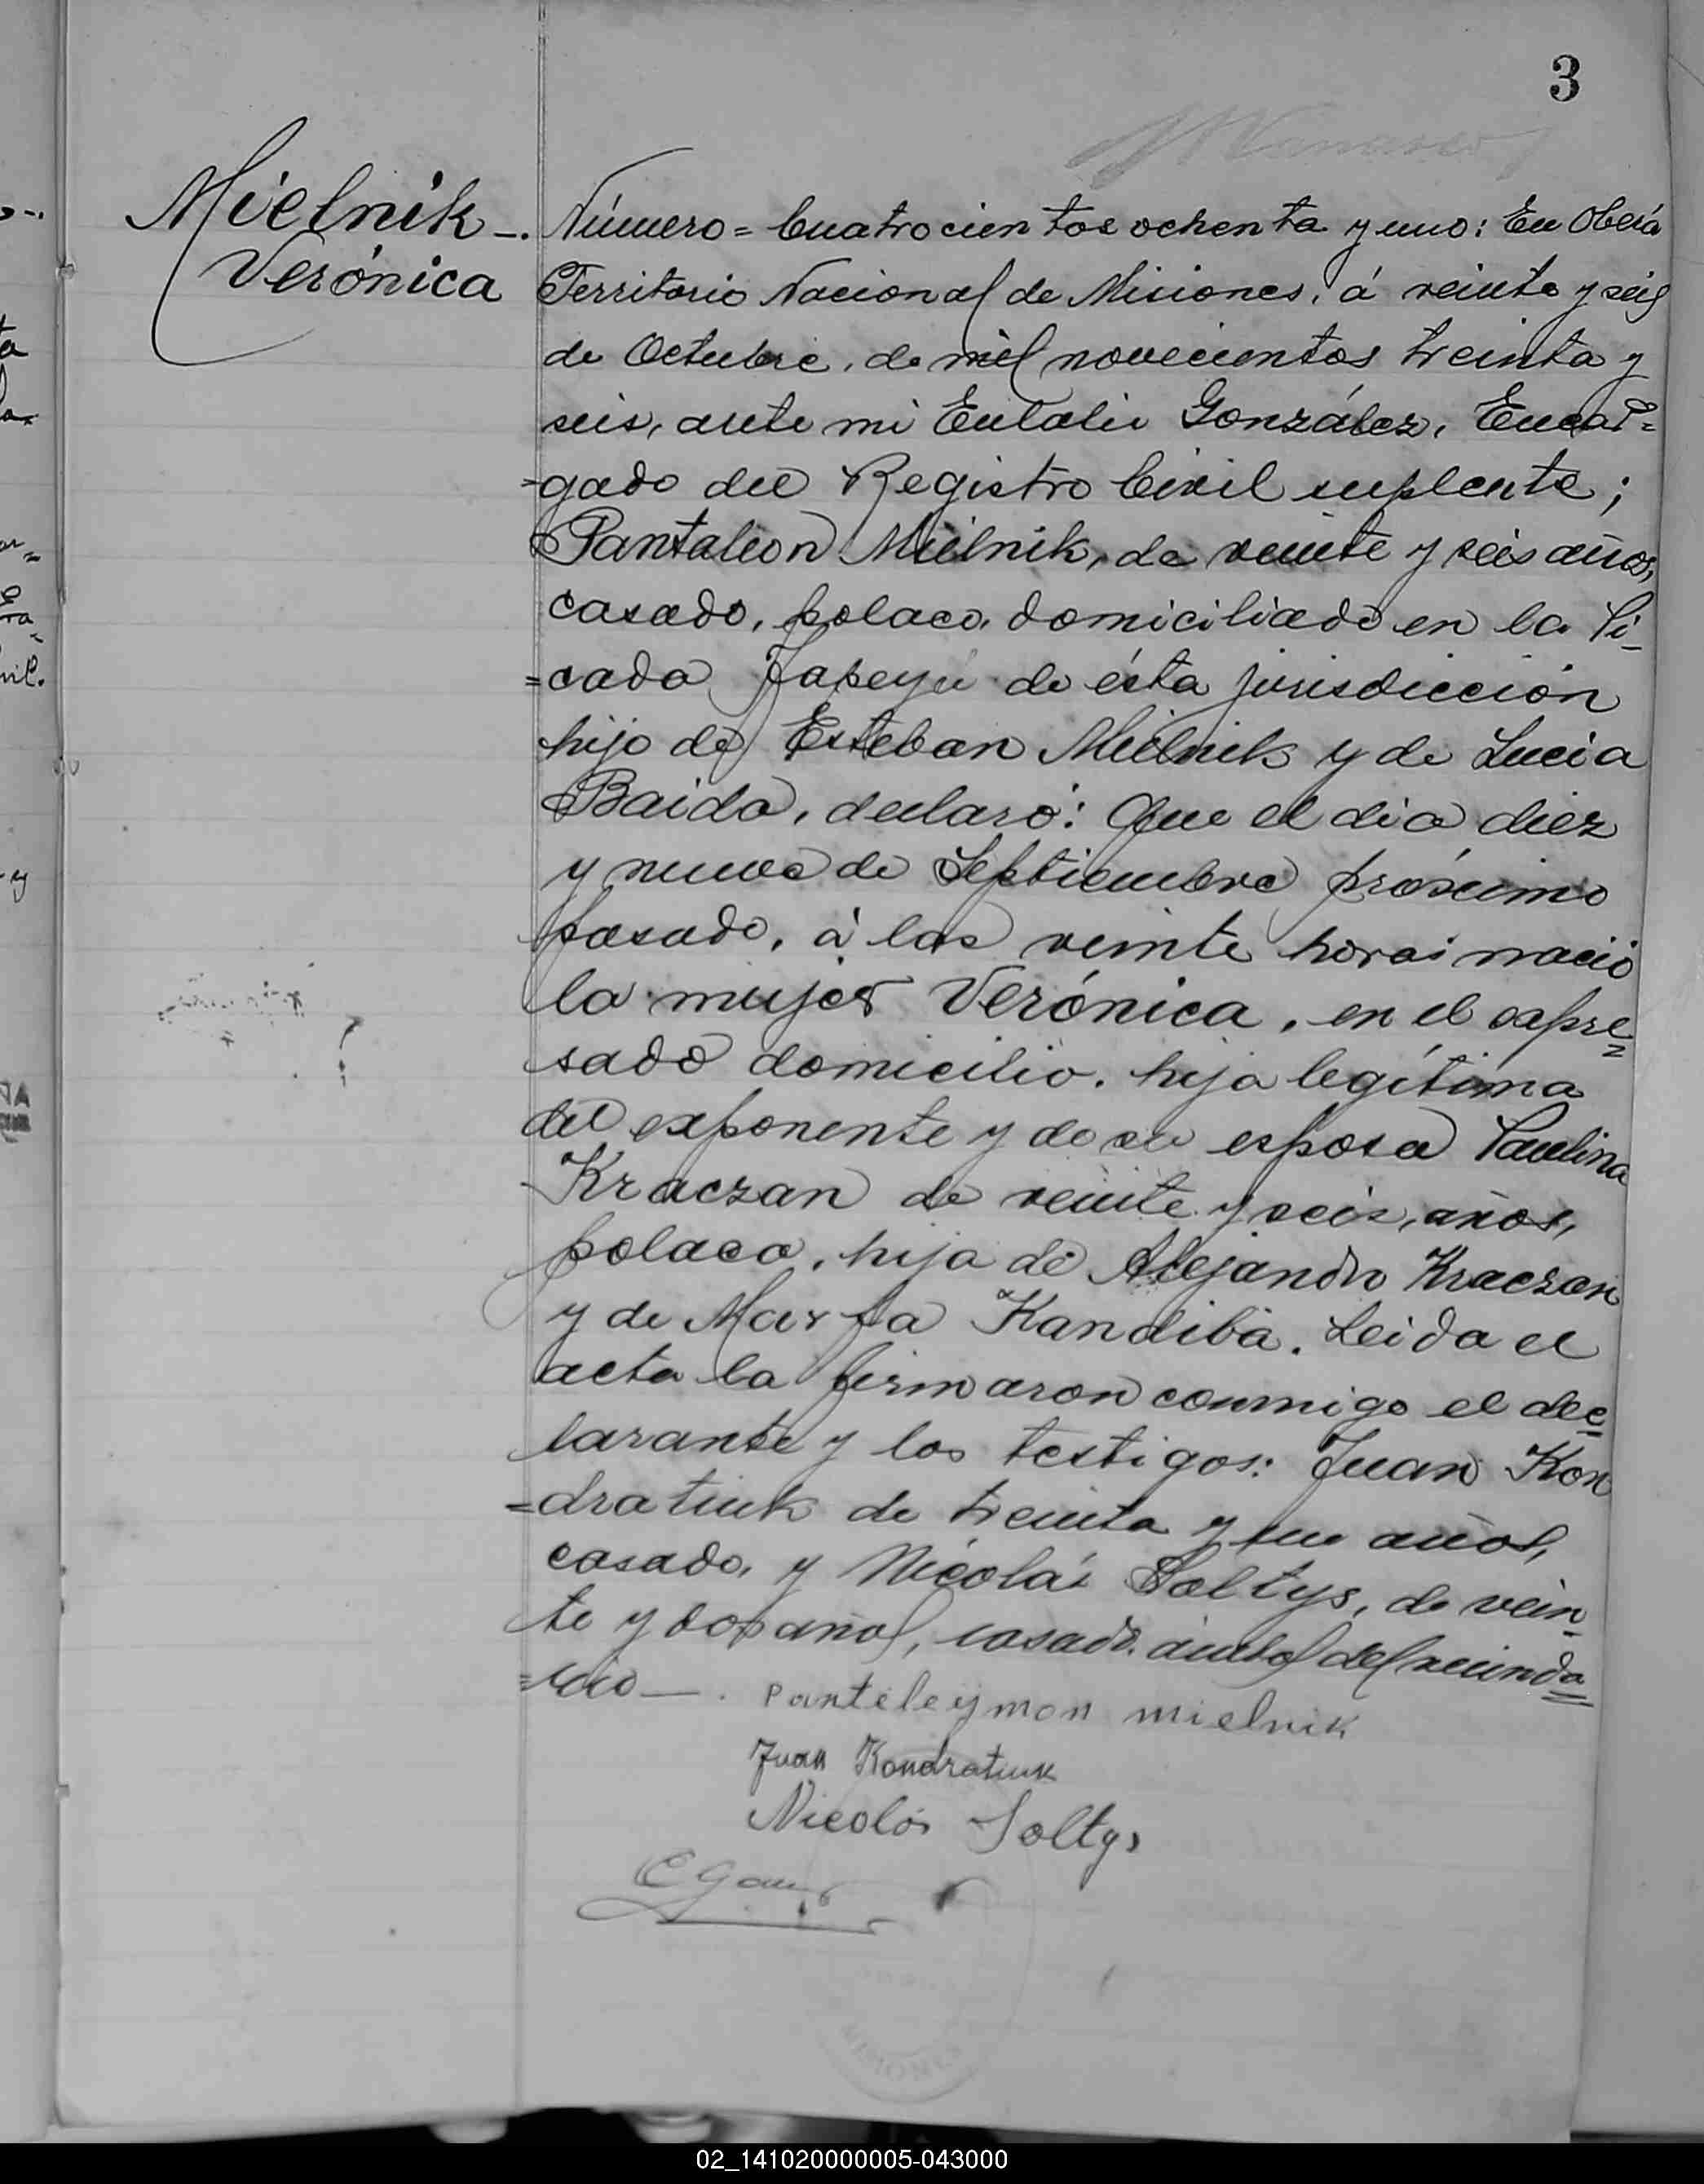 3
Mielnik-.
Verónica
Número = Cuatrocientos ochenta y uno: En Oberá
Territorio Nacional de Misiones, á veinte y seis
de Octubre, de mil novecientos treinta y
seis, ante mi Eulalio González, Encar=
=gado del Registro Civil suplente;
Pantaleon Mielnik, de veinte y seis años,
casado, polaco, domiciliado en la Pi_
=cada Yapeyú de ésta jurisdicción
hijo de Esteban Mielnik y de Lucia
Baida, declaró: Que el dia diez
y nueve de Septiembre próximo
pasado, á las veinte horas nació
la mujer Verónica, en el expre=
sado domicilio. hija legítima
del exponente y de su esposa Paulina
Kraczan de veinte y seis, años,
polaca, hija de Alejandro Kraczan
y de Marfa Kandiba. Leida el
acta la firmaron conmigo el dec=
larante y los testigos: Juan Kon
=dratiuk de treinta y un años,
casado, y Nicolás Soltys, de vein_
te y dos años, casado. ambos del vecinda=
=rio —. Panteleymon mielnik
Juan Kondratiuk
Nicolás Soltys
02_141020000005-043000